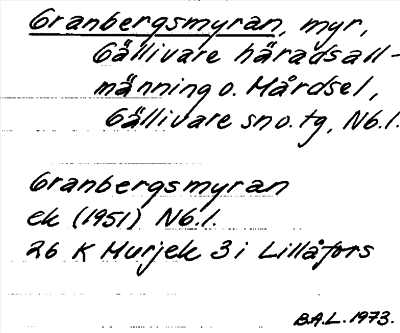 Granbergsmyran, myr,
Gällivare häradsall-
männing o. Mårdsel,
Gällivare sn o. tg, Nb.l.
Granbergsmyran
ek (1951) Nb.l.
26 K Murjek 3 i Lillåfors
B.A.L. 1973.